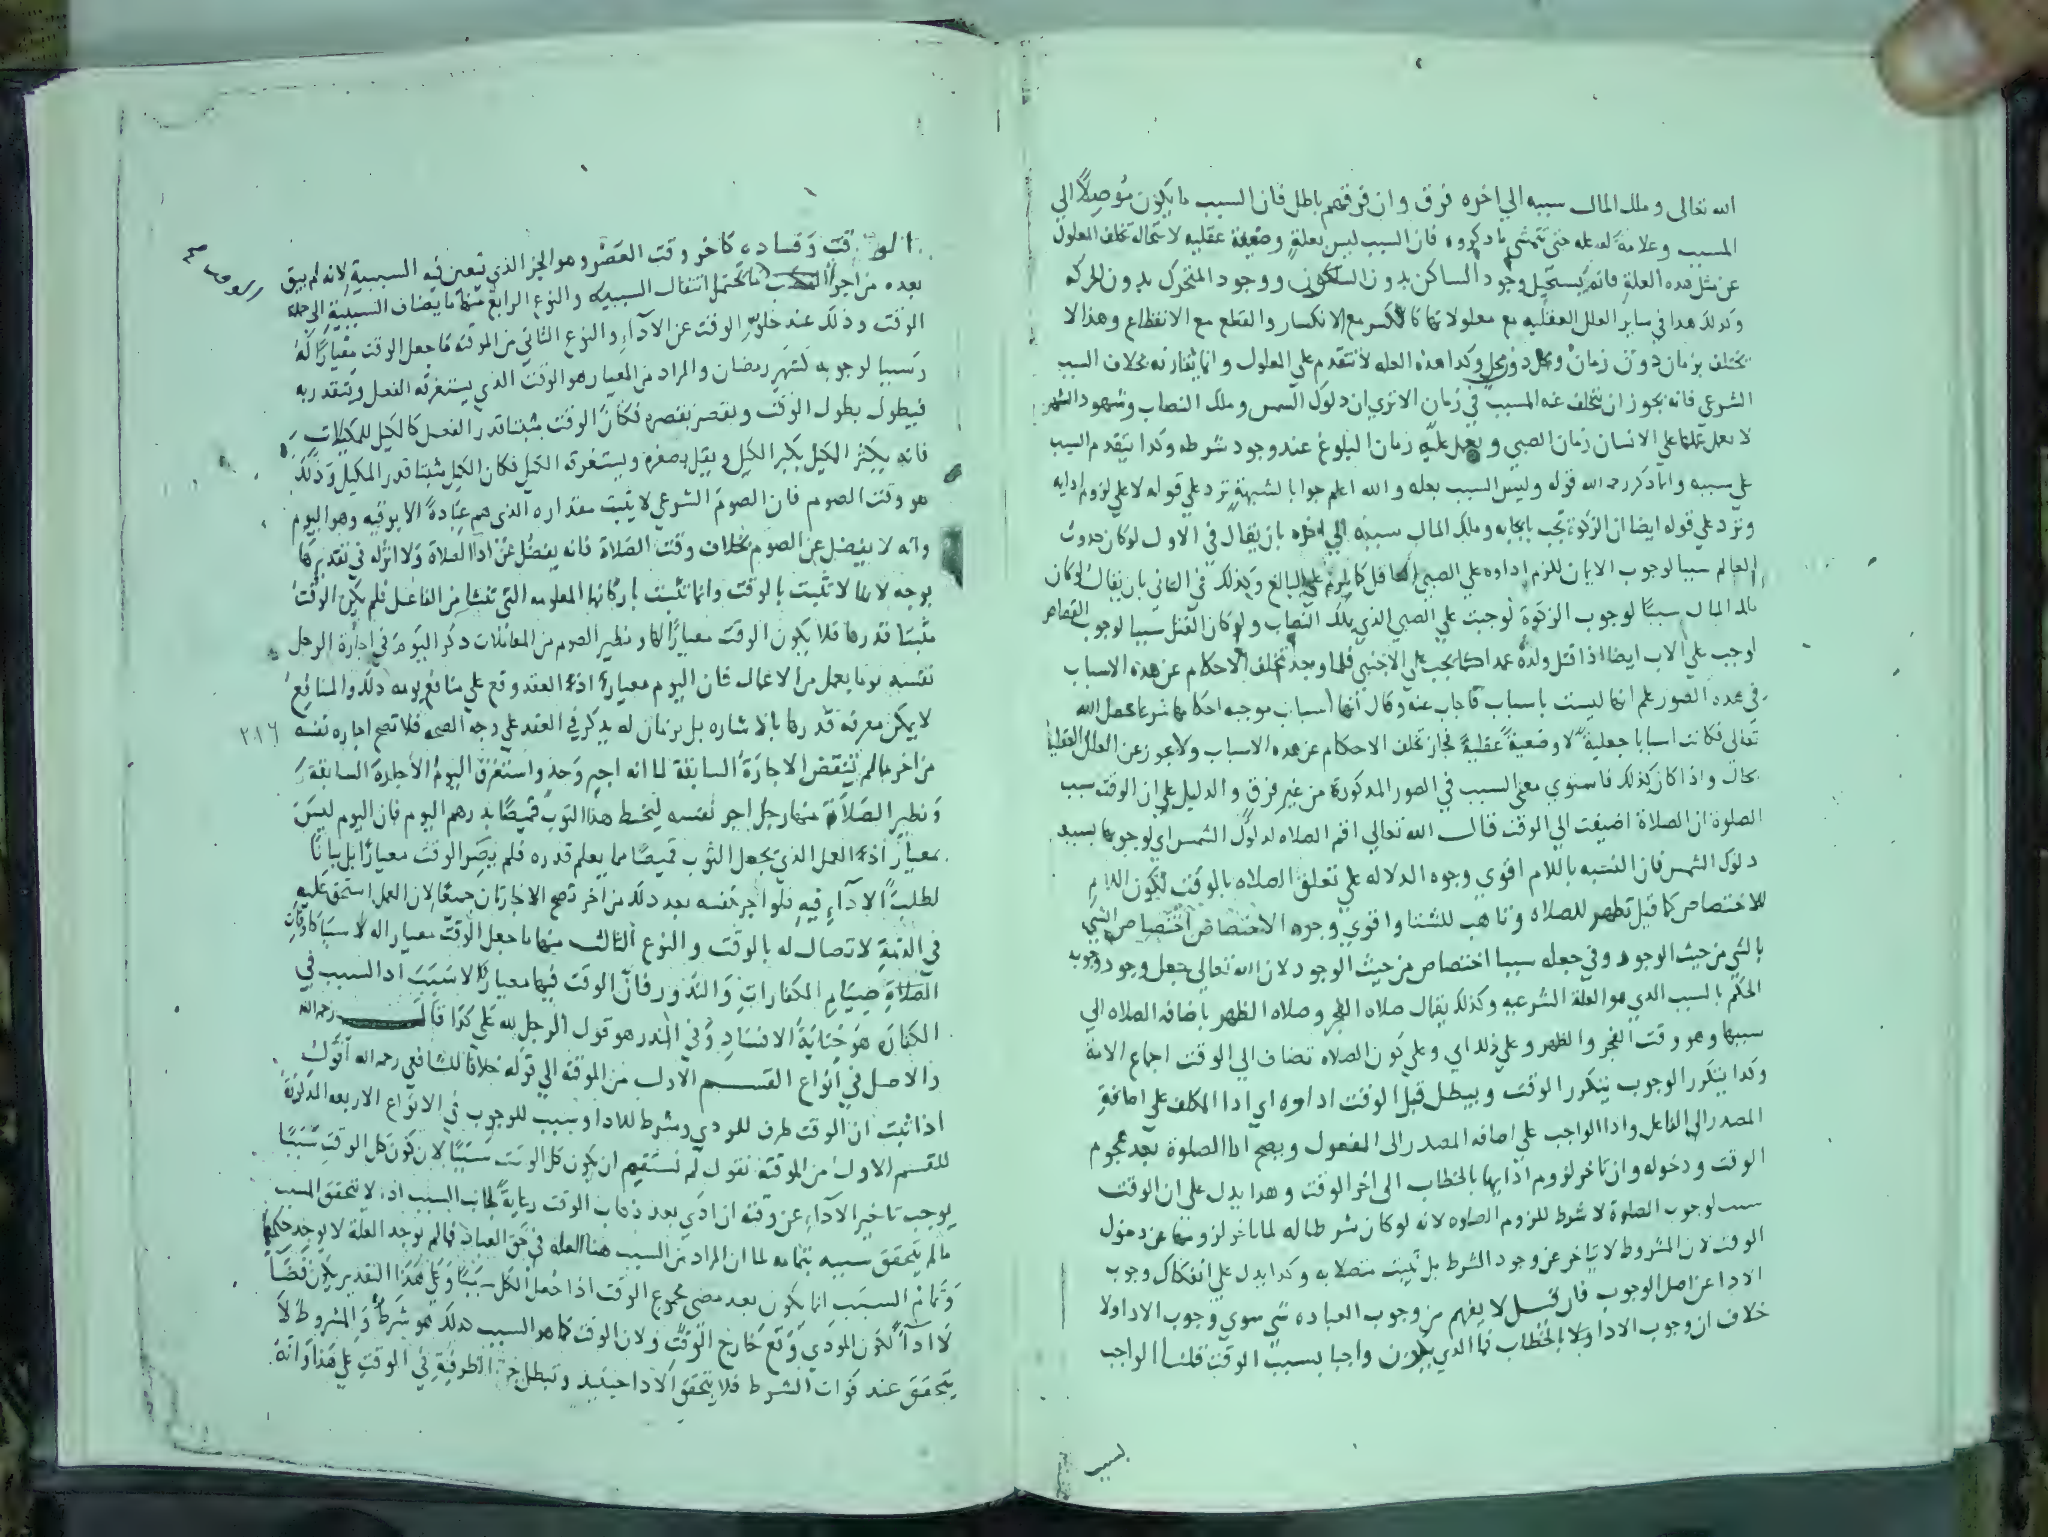 الله تعالى وملك المال سببه الي اخره فرق وان فرقهم باطل فان السبب ما يكون مؤصلاً الي
المسبب وعلامة له حتى تتمشي ما ذكروه فان السبب ليس بعلةٍ وضعية عقلية لاستحالة تخلف المعلول
عن مثل هذه العلة فانه يستحيل وجود الساكن بدون السكون ووجود المتحرك بدون الحركه
وكذلك هذا في ساير العلل العقليه مع معلولاتها كالكسر مع الانكسار والقطع مع الانقطاع وهذا لا
يختلف بزمان دون زمان ومحل دون محل وكذا هذه العله لا تتقدم علي المعلول وانما تقارنه بخلاف السبب
الشرعي فانه يجوز ان يتخلف عنه المسبب في زمان الا تري ان دلوك الشمس وملك النصاب وشهود الشهر
لا يعمل عملها علي الانسان زمان الصبي ويعمل عليه زمان البلوغ عند وجود شرطه وكذا يتقدم السبب
علي سببه وانما ذكر رحمه الله قوله وليس السبب بعله والله اعلم جوابا لشبهةٍ ترد علي قوله لا علي لزوم ادايه
وترد علي قوله ايضا ان الزكوة تجب بايجابه وملك المال سببه الي اخره بان يقال في الاول لو كان حدوث
العالم سببا لوجوب الايمان للزم اداوه علي الصبي العاقل كما يلزم علي البالغ وكذلك في الثاني بان يقال لو كان
ملك المال سببًا لوجوب الزكوة لوجبت علي الصبي الذي يملك النصاب ولو كان القتل سببا لوجوب القصاص
لوجب علي الاب ايضا اذا قتل ولده عمدا كما يجب علي الاجنبي فلما وجد تخلف الاحكام عن هذه الاسباب
في هذه الصور علم انها ليست باسباب فاجاب عنه وقال انها اسباب موجبه احكامها شرعا بجعل الله
تعالى فكانت اسبابا جعليةً لا وضعيةً عقليةً فجاز تخلف الاحكام عن هذه الاسباب ولا يجوز عن العلل العقلية
بحال واذا كان كذلك فاستوي معنى السبب في الصور المذكورة من غير فرق والدليل علي ان الوقت سبب
الصلوة ان الصلاة اضيفت الي الوقت قال الله تعالي اقم الصلاه لدلوك الشمس اي لوجوبها بسبب
دلوك الشمس فان النسبه باللام اقوي وجوه الدلاله علي تعلق الصلاه بالوقت لكون اللام
للاختصاص كما قيل تطهر للصلاه وتاهب للشتا واقوي وجوه الاختصاص اختصاص الشي
بالشي من حيث الوجود وفي جعله سببا اختصاص من حيث الوجود لان الله تعالي جعل وجود وجوب
الحكم بالسبب الذي هو العلة الشرعيه وكذلك يقال صلاه الفجر وصلاه الظهر باضافه الصلاه الي
سببها وهو وقت الفجر والظهر وعلي ذلك اي وعلي كون الصلاه تضاف الي الوقت اجماع الامة
وكذا يتكرر الوجوب بتكرر الوقت ويبطل قبل الوقت اداوه اي ادا المكلف علي اضافةِ
المصدر الى الفاعل وادا الواجب علي اضافه المصدر الى المفعول ويصح ادا الصلوة بعد هجوم
الوقت ودخوله وان تاخر لزوم ادايها بالخطاب الى اخر الوقت وهذا يدل على ان الوقت
سبب لوجوب الصلوة لا شرط للزوم الصلوه لانه لو كان شرطا له لما تاخر لزومها عن دخول
الوقت لان المشروط لا يتاخر عن وجود الشرط بل يثبت متصلا به وكذا يدل علي انفكاك وجوب
الادا عن اصل الوجوب فان قيل لا يفهم من وجوب العباده شي سوي وجوب الادا ولا
خلاف ان وجوب الادا بالخطاب فما الذي يكون واجبا بسبب الوقت قلنا الواجب
بسبب
الوقت وفساده كاخر وقت العصر وهو الجز الذي تعين فيه السببية لانه لم يبق
بعده من اجزا الوقت ما يحتمل انتقال السببية والنوع الرابع منها ما يضاف السببية الى جملة
الوقت وذلك عند خلوِّ الوقت عن الآداءِ والنوع الثاني من الموقته ما جعل الوقت معيارًا لهُ
وسببا لوجوبه كشهر رمضان والمراد من المعيار هو الوقت الذي يستغرقه الفعل ويتقدر به
فيطول بطول الوقت ويقصر بقصره فكان الوقت مثبتا قدر الفعل كالكيل للمكيلات
فانه يكثر المكيل بكبر الكيل ويقل بصغره ويستغرقه الكيل فكان الكيل مثبتا قدر المكيل وذلك
هو وقت الصوم فان الصوم الشرعي لا يثبت مقداره الذي هو عبادةً الا بوقته وهو اليوم
وانه لا يفضل عن الصوم بخلاف وقت الصلاة فانه يفضل عن ادا الصلاة ولا اثر له في تقديرها
بوجه لانها لا تثبت بالوقت وانما تثبت باركانها المعلومه التي تنشا من الفاعل فلم يكن الوقتُ
مثبتا قدرها فلا يكون الوقت معيارًا لها ونظير الصوم من المعاملات ذكر اليوم في اجارة الرجل
نفسه يوما يعمل من الاعمال فان اليوم معيارهُ اذ العقد وقع علي منافع يومه ذلك والمنافعُ
لا يمكن معرفة قدرها بالاشاره بل بزمان له يذكر في العقد علي وجه الصحه فلا تصح اجاره نفسه
٢١٦
من اخر ما لم تنقض الاجارة السابقة لما انه اجير وَحدٍ واستغرق اليومُ الاجارة السابقة
ونظير الصلاة منها رجل اجر نفسه ليخيط هذا الثوب قميصًا بدرهم اليوم فان اليوم ليس
بمعيارٍ اذ العمل الذي يجعل الثوب قميصًا مما يعلم قدره فلم يصر الوقت معيارًا بل بيانًا
لطلبة الآداءِ فيه فلو اجر نفسه بعد ذلك من اخر تصح الاجارتان جميعًا لان العمل استحق عليه
في الذمةِ لا تصال له بالوقت والنوع الثالث منها ما جعل الوقت معيارا له لا سببا كاوقات
صيام الكفارات والنذور فان الوقت فيها معيارا لا سببَ اذ السبب في
الكفارة هو جناية الافساد وفي النذر هو قول الرجل لله علي كذا قال رحمه الله
والاصل في انواع القسم الاول من الموقته الي قوله خلافا للشافعي رحمه الله اقول
اذا ثبت ان الوقت ظرف للمودي وشرط للادا وسبب للوجوب في الانواع الاربعه المذكورة
للقسم الاول من الموقته نقول لم يستقيم ان يكون كل الوقت سببًا لان كون كل الوقت سببًا
يوجب تاخير الآداءِ عن وقته ان ادي بعد ذهاب الوقت رعايةً لجانب السبب اذ لا يتحقق المسبب
ما لم يتحقق سببه بتمامه لما ان المراد من السبب هنا العله في حق العباد فما لم يوجد العلة لا يوجد حكمها
وتمام السبب انما يكون بعد مضي مجموع الوقت اذا جُعل الكل سببًا وعلي هذا التقدير يكون قضاً
لا اداً لكون المودي وقع خارج الوقت ولان الوقت كما هو السبب كذلك هو شرط والمشروط لا
يتحقق عند فوات الشرط فلا يتحقق الادا حينيذ وتبطل جهة الظرفية في الوقت علي هذا وانه